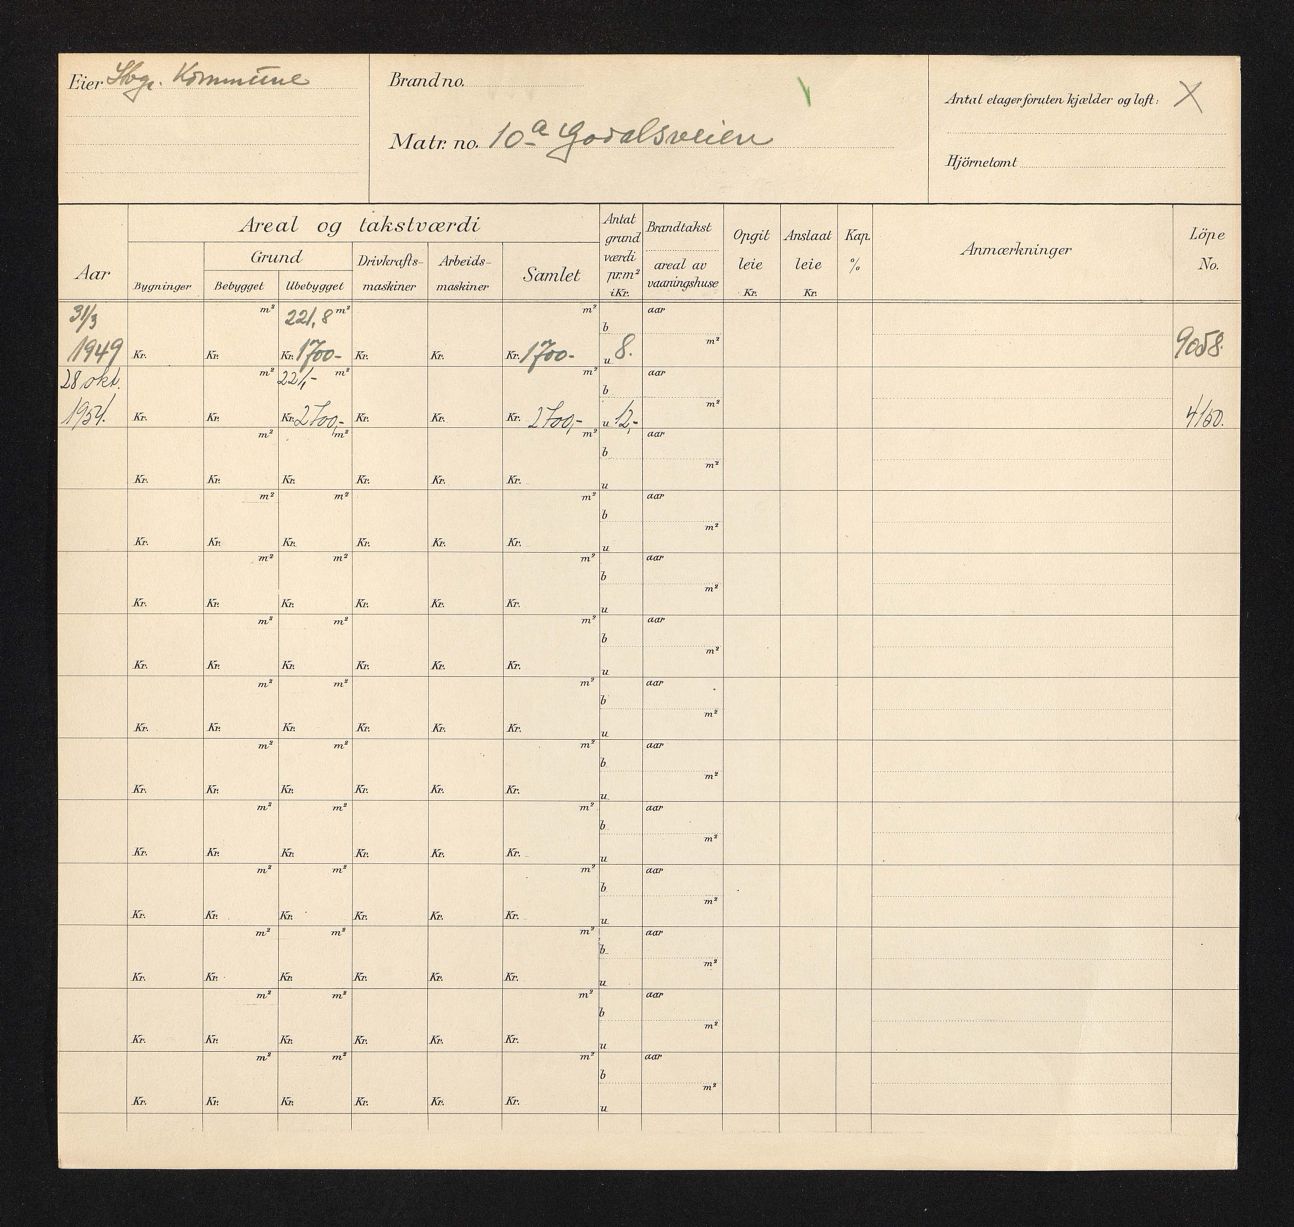 Eier Stvgr. Kommune
Brandno.
Matr. no. 10a Godalsveien
Antal etager foruten kjælder og loft: X
Hjörnetomt
Aar
Areal og takstværdi
Grund
Bygninger
Bebygget
Ubebygget
Drivkrafts-
maskiner
Arbeids-
maskiner
Samlet
Antat
grund
værdi
pr.m²
i Kr.
Brandtakst
areal av
vaaningshuse
Opgit
leie
Kr.
Anslaat
leie
Kr.
Kap.
%
Anmærkninger
Löpe
No.
31/3 m² 221,8 m² m² b aar
1949 Kr. Kr. Kr. 1700- Kr. Kr. Kr. 1700- u 8. m² 9058.
28 okt. m² 221,- m² m² b aar
1954. Kr. Kr. Kr. 2700,- Kr. Kr. Kr. 2700,- u 12,- m² 4150.
m² m² m² b aar
Kr. Kr. Kr. Kr. Kr. Kr. u m²
m² m² m² b aar
Kr. Kr. Kr. Kr. Kr. Kr. u m²
m² m² m² b aar
Kr. Kr. Kr. Kr. Kr. Kr. u m²
m² m² m² b aar
Kr. Kr. Kr. Kr. Kr. Kr. u m²
m² m² m² b aar
Kr. Kr. Kr. Kr. Kr. Kr. u m²
m² m² m² b aar
Kr. Kr. Kr. Kr. Kr. Kr. u m²
m² m² m² b aar
Kr. Kr. Kr. Kr. Kr. Kr. u m²
m² m² m² b aar
Kr. Kr. Kr. Kr. Kr. Kr. u m²
m² m² m² b aar
Kr. Kr. Kr. Kr. Kr. Kr. u m²
m² m² m² b aar
Kr. Kr. Kr. Kr. Kr. Kr. u m²
m² m² m² b aar
Kr. Kr. Kr. Kr. Kr. Kr. u m²